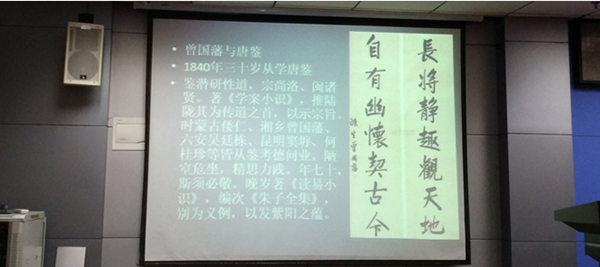 曾国藩与唐鉴
1840年三十岁从学唐鉴
鉴潜研性道，宗尚洛、闽诸
贤。著《学案小识》，推陆
陇其为传道之首，以示宗旨。
时蒙古倭仁、湘乡曾国藩、
六安吴廷栋、昆明窦垿、何
桂珍等皆从鉴考德问业。陋
室危坐，精思力践。年七十，
斯须必敬。晚岁著《读易小
识》，编次《朱子全集》，
别为义例，以发紫阳之蕴。
長將静趣觀天地
自有幽懷契古今
滌生曾國藩